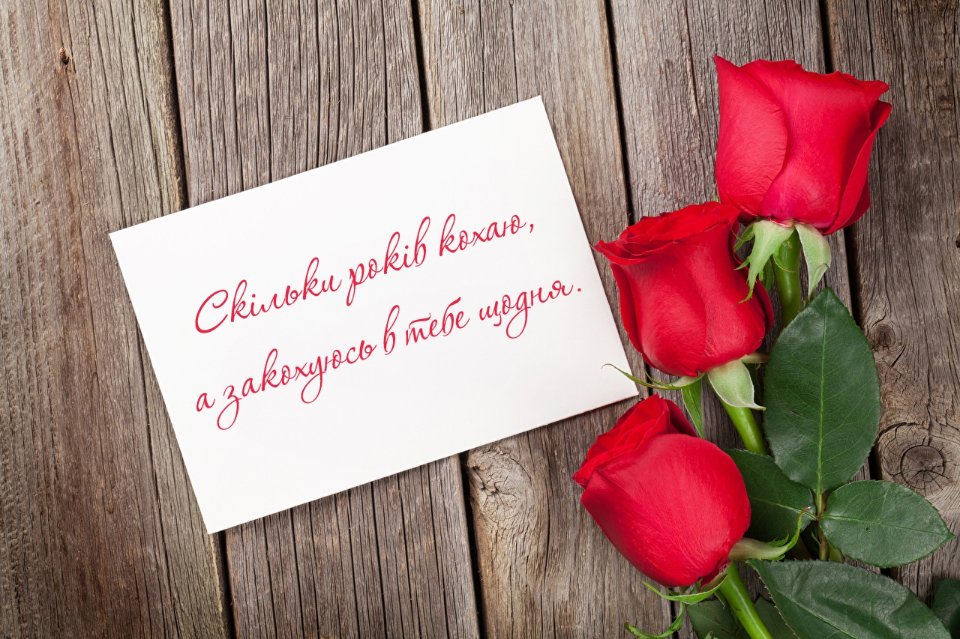 Скільки років кохаю,
а закохуюсь в тебе щодня.